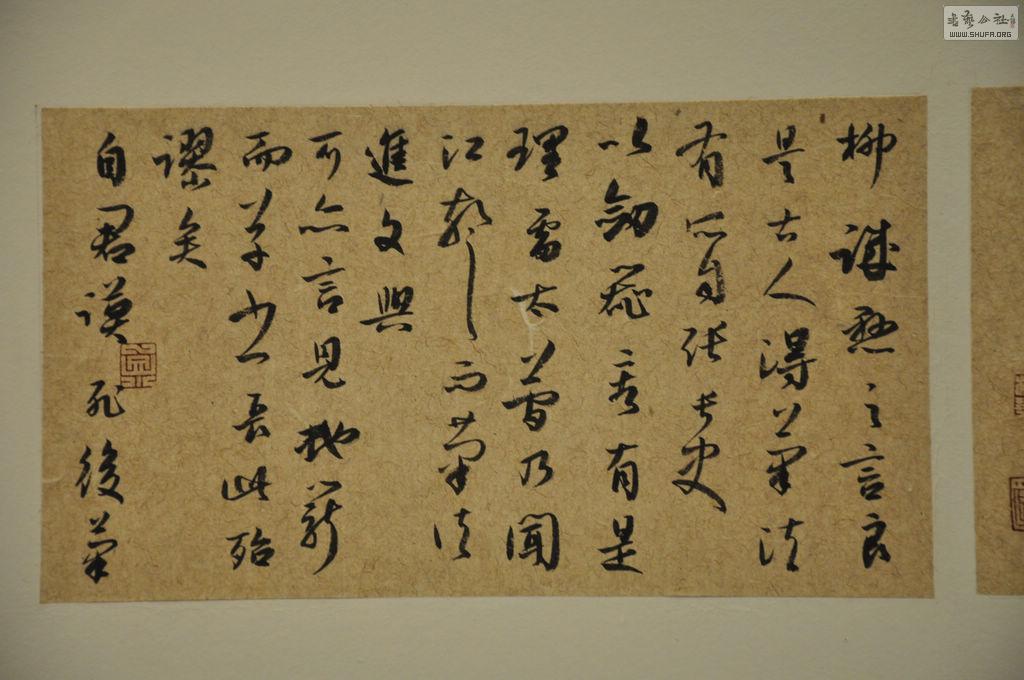 柳誠懸之言良
是古人得筆法
有所自張長史
以劍器容有是
理雷太簡乃聞
江聲而筆法
進文與
可亦言見蛇鬥
而草書長此殆
謬矣
自君謨死後筆
書藝公社
WWW.SHUFA.ORG